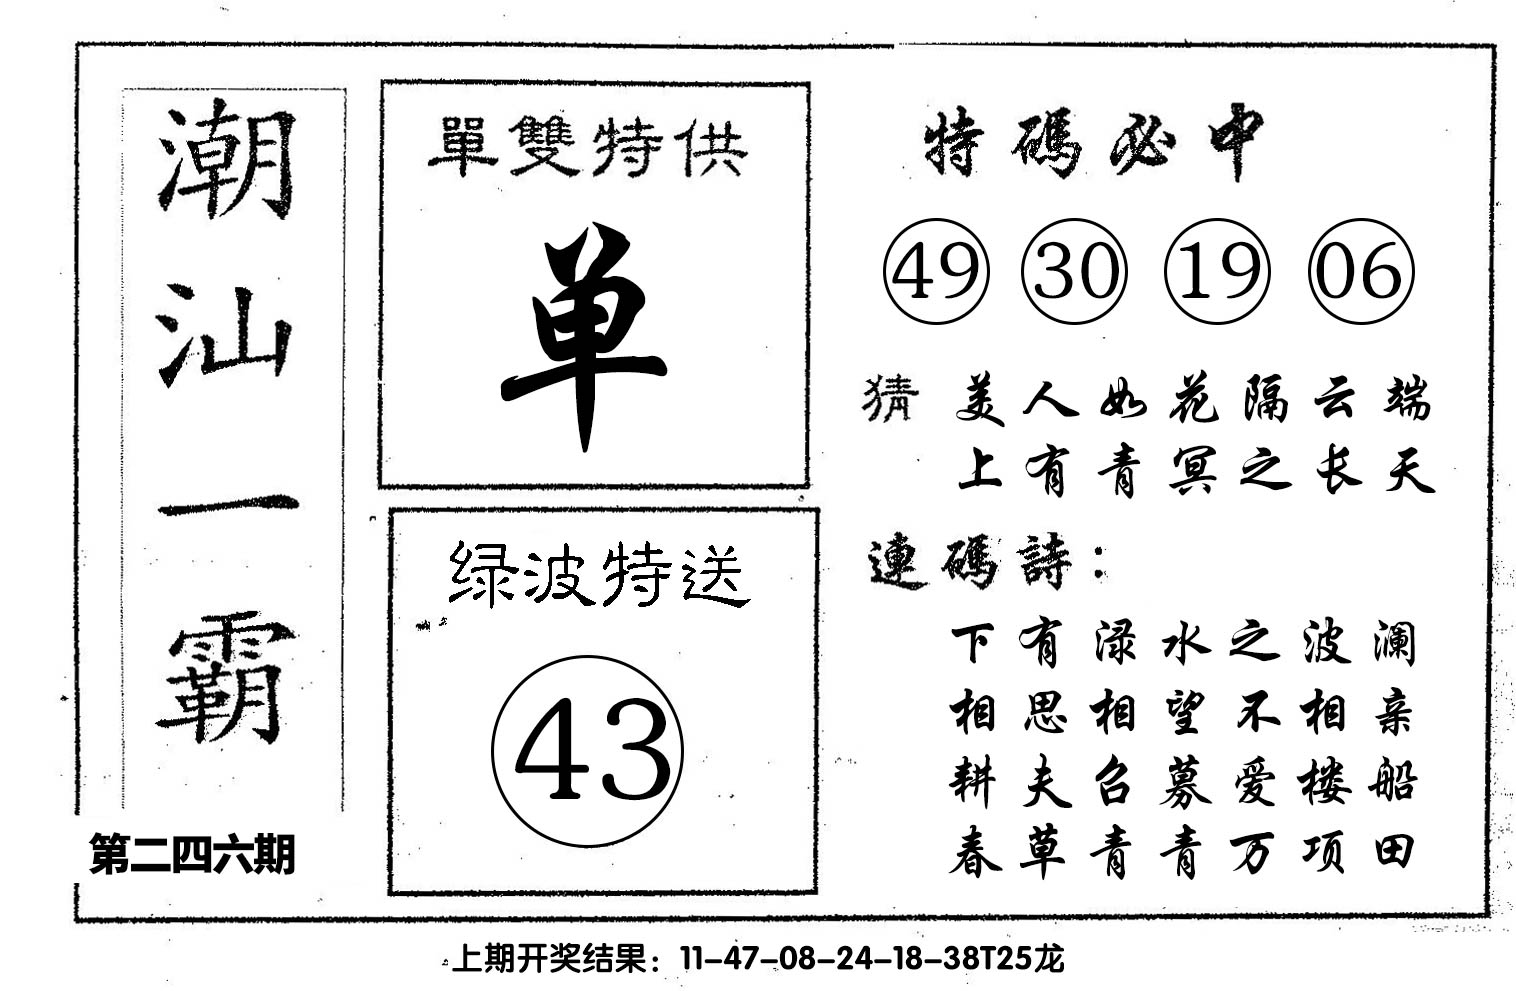 潮汕一霸
第二四六期
單雙特供
单
绿波特送
43
特碼必中
49 30 19 06
猜 美人如花隔云端
上有青冥之长天
連碼詩：
下有渌水之波澜
相思相望不相亲
耕夫召募爱楼船
春草青青万项田
上期开奖结果：11-47-08-24-18-38T25龙